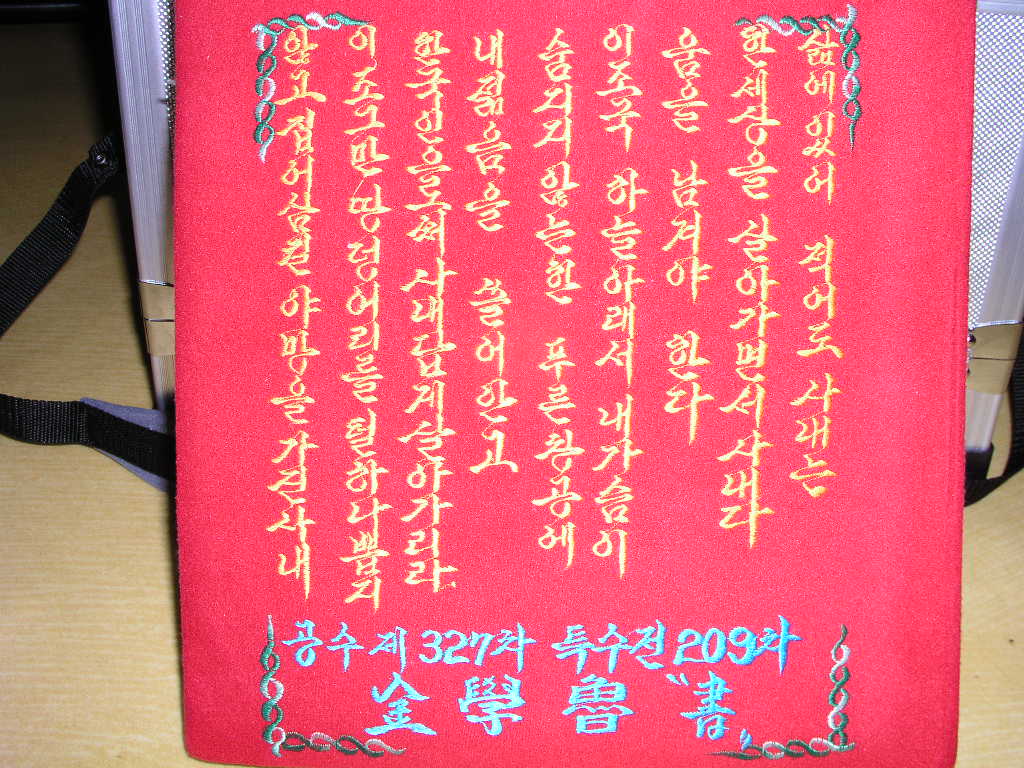 삶에 있어 적어도 사내는
한세상을 살아가면서 사내다
움을 남겨야 한다
이조국 하늘아래서 내가슴이
않는한 푸른창공에
내젊음을 쓸어안고
한국인으로써 사내답게살아가리라.
이 조그만 땅덩어리를 털하나 뽑지
않고 집어삼킬 야망을 가진사내
공수 제 327차 특수전 209차
金 學 魯 〝書〟